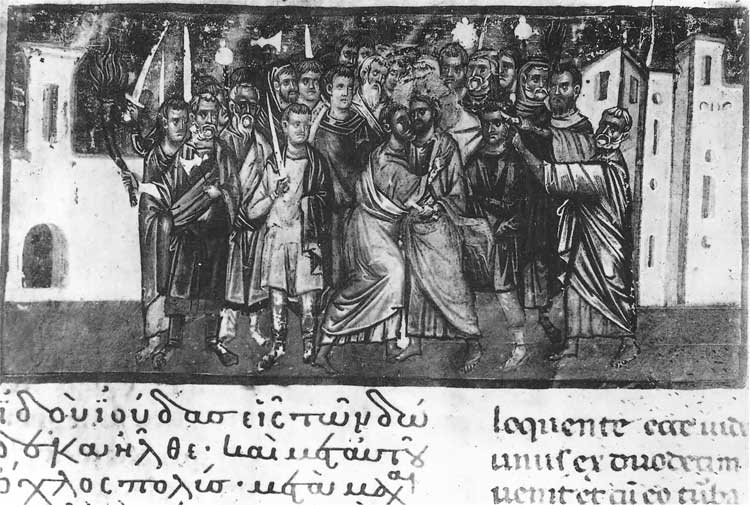 ἰδοὺ ἰούδας εἷς τῶν δώ
δεκα ἦλθε· καὶ μετ αὐτοῦ
ὄχλος πολὶς· μετὰ μαχαι
loquente ecce iuda
unus ex duodecim
venit et cū eo turba